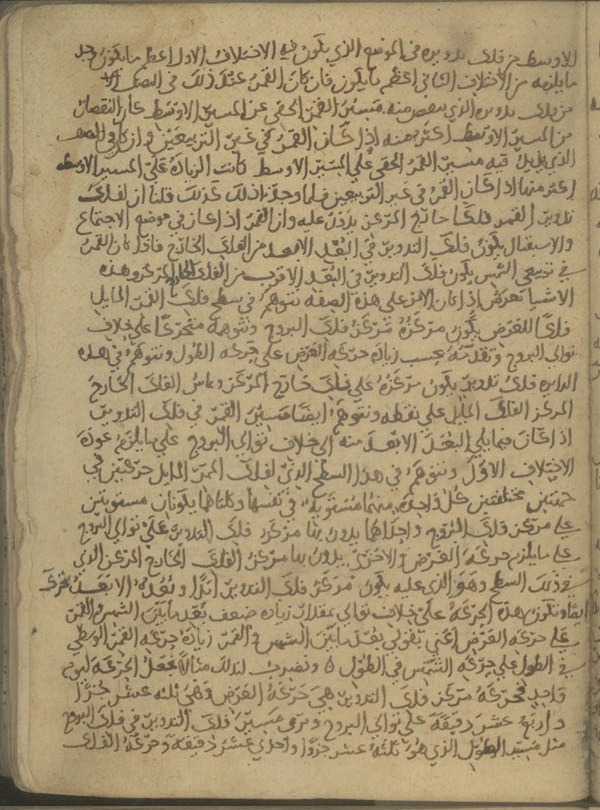 الاوسط من فلك تدويره في الموضع الذي يكون فيه الاختلاف الاول اعظم ما يكون وجد
ما يلزمه من الاختلاف الثاني اعظم ما يكون فان كان القمر عند ذلك في النصف
من فلك تدويره الذي ينقص منه مسير القمر الحقي عن المسير الاوسط كان النقصان
من المسير الاوسط اكثر منه اذا كان القمر في غير التربيعين وان كان في النصف
الذي يزيد فيه مسير القمر الحقي على المسير الاوسط كانت الزيادة على المسير الاوسط
اكثر منها اذا كان القمر في غير التربيعين فلما وجدنا ذلك كذلك قلنا ان لفلك
تدوير القمر فلكا خارج المركز يدور عليه وان القمر اذا كان في موضع الاجتماع
والاستقبال يكون فلك التدوير في البعد الابعد من الفلك الخارج فاذا كان القمر
في تربيعي الشمس يكون فلك التدوير في البعد الاقرب من الفلك الخارج المركز وهذه
الاشيا تعرض اذا كان الامر على هذه الصفة نتوهم في سطح فلك القمر المايل
فلكا للعرض يكون مركزه مركز فلك البروج ونتوهمه متحركا على خلاف
توالي البروج وتقدمه بحسب زيادة حركة العرض على حركة الطول ونتوهم في هذه
الدايرة فلك تدوير يكون مركزه على فلك خارج المركز ويماس الفلك الخارج
المركز الفلك المايل على نقطة ونتوهم ايضا مسير القمر في فلك التدوير
اذا كان فيما يلي البعد الابعد منه الى خلاف توالي البروج على ما يلزم عودة
الاختلاف الاول ونتوهم في هذا السطح الذي لفلك القمر المايل حركتين في
جهتين مختلفتين كل واحدة منهما مستوية في نفسها وكلتاهما يكونان مستويتين
على مركز فلك البروج واحداهما يدور بها مركز فلك التدوير على توالي البروج
على ما يلزم حركة العرض والاخرى يدور بها مركز الفلك الخارج المركز الذي
في ذلك السطح وهو الذي عليه يكون مركز فلك التدوير ابدا وبعده الابعد يتحرك
ايضا وتكون هذه الحركة على خلاف توالي بمقدار زيادة ضعف بعد ما بين الشمس والقمر
على حركة العرض اعني بقولي بعد ما بين الشمس والقمر زيادة حركة القمر الوسطى
في الطول على حركة الشمس في الطول ونضرب لذلك مثالا نجعل الحركة ليوم
واحد فحركة مركز فلك التدوير هي حركة العرض وهي ثلثة عشر جزا
واربع عشر دقيقة على توالي البروج ونرى مسير فلك التدوير في فلك البروج
مثل مسير الطول الذي هو ثلثة عشر جزوا واحدى عشر دقيقة وحركة الفلك